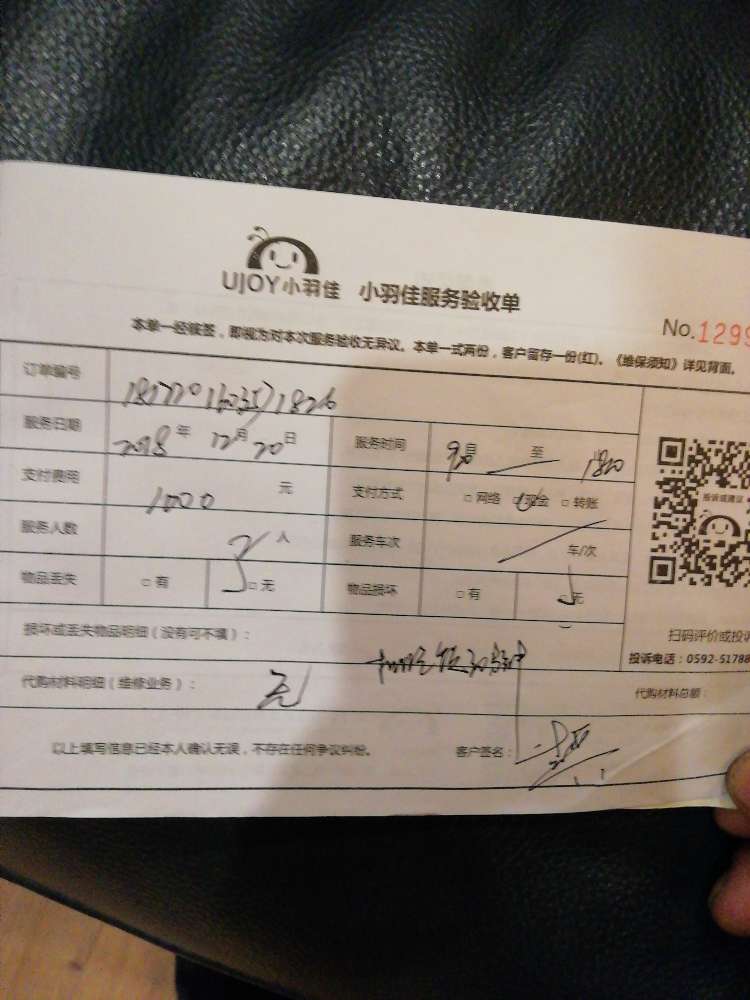 UJOY小羽佳 小羽佳服务验收单
No.1299
本单一经核签，即视为对本次服务验收无异议。本单一式两份，客户留存一份(红)。《维保须知》详见背面。
订单编号
服务日期 2018年12月20日 服务时间 自 至
支付费用 1000元 支付方式 □网络 □现金 □转账
服务人数 3人 服务车次 车/次
物品丢失 □有 □无 物品损坏 □有 □无
损坏或丢失物品明细（没有可不填）：
代购材料明细（维修业务）： 无 代购材料总额：
以上填写信息已经本人确认无误，不存在任何争议纠纷。 客户签名：
投诉或建议
扫码评价或投诉
投诉电话：0592-51788